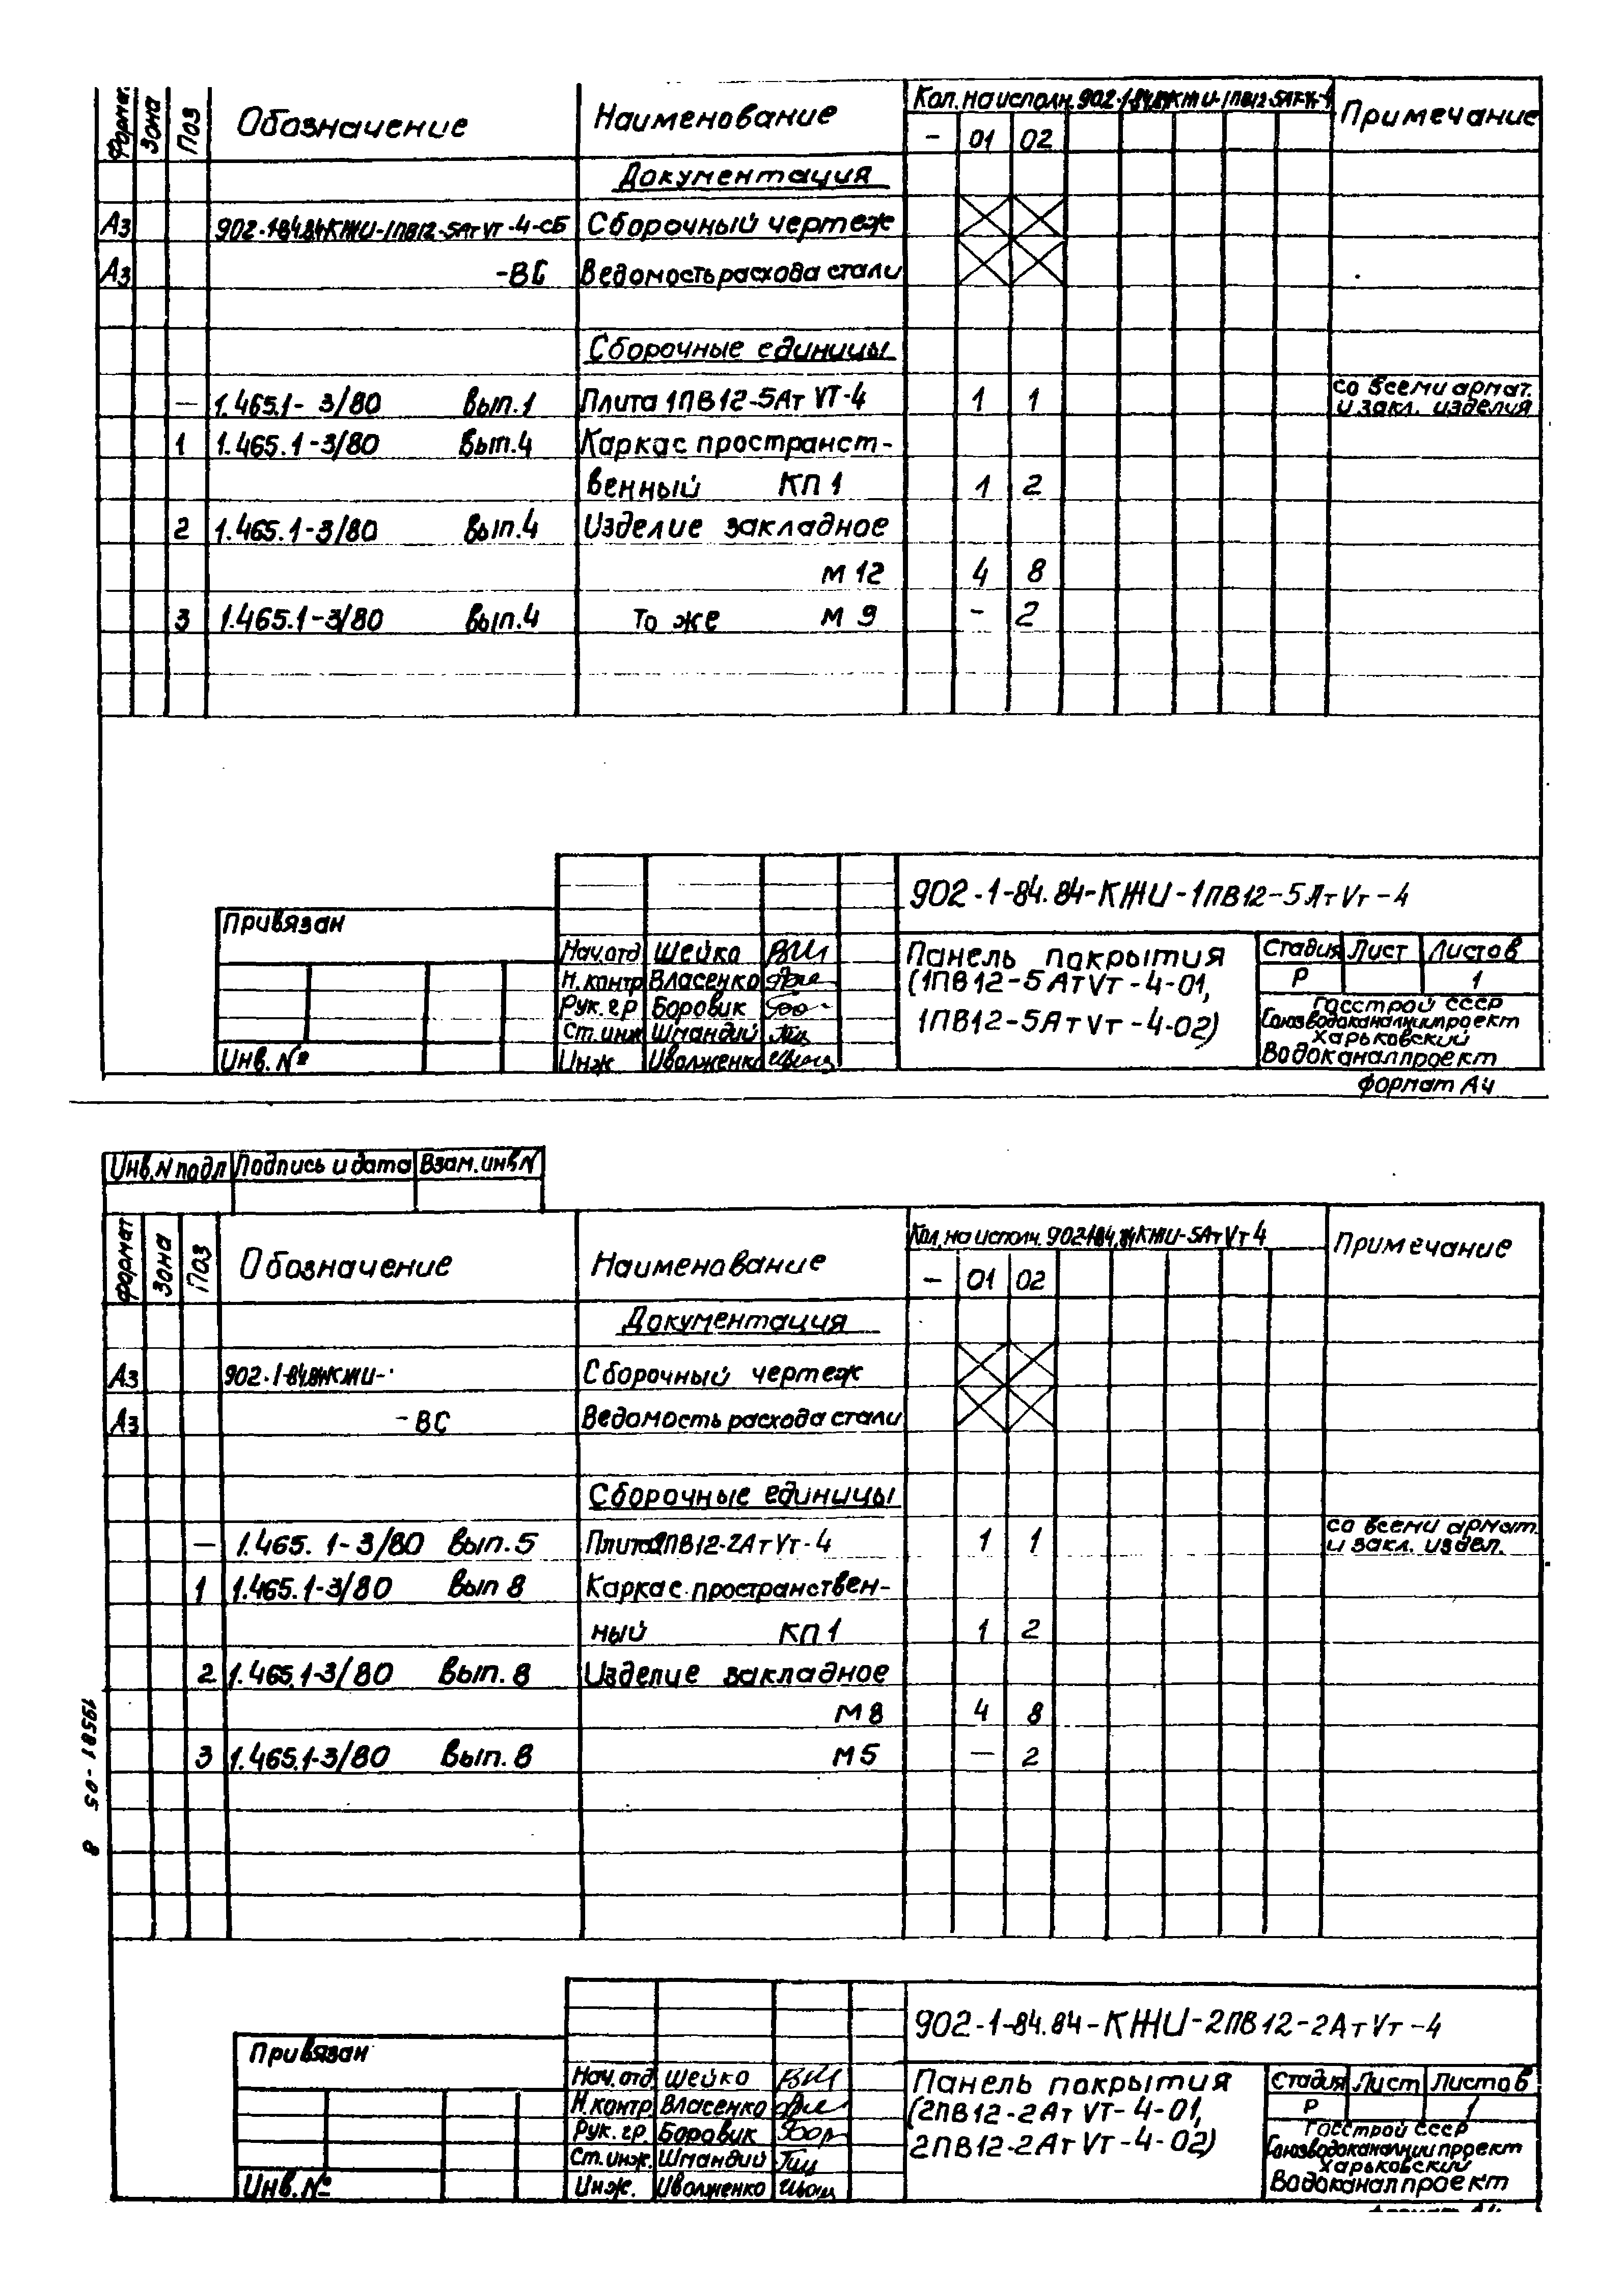 Формат. Зона Поз Обозначение Наименование Кол. на исполн. 902-1-84.84КЖИ-1ПВ12-5АтVт-4 Примечание
- 01 02
Документация
А3 902-1-84.84КЖИ-1ПВ12-5АтVт-4-СБ Сборочный чертеж
А3 -ВС Ведомость расхода стали
Сборочные единицы
— 1.465.1-3/80 Вып.1 Плита 1ПВ12-5АтVТ-4 1 1 со всеми армат.
и закл. изделия
1 1.465.1-3/80 Вып.4 Каркас пространст-
венный КП1 1 2
2 1.465.1-3/80 Вып.4 Изделие закладное
М12 4 8
3 1.465.1-3/80 Вып.4 То же М9 - 2
902-1-84.84-КЖИ-1ПВ12-5АтVт-4
Привязан
Нач.отд Шейко
Н.контр Власенко
Рук.гр Боровик
Ст.инж Шмандий
Инж Иволженко
Инв.№
Панель покрытия
(1ПВ12-5АтVт-4-01,
1ПВ12-5АтVт-4-02)
Стадия Лист Листов
Р 1
Госстрой СССР
Союзводоканалниипроект
Харьковский
Водоканалпроект
формат А4
Инв.N подл Подпись и дата Взам.инв N
формат Зона Поз Обозначение Наименование Кол. на исполн. 902-1-84.84КЖИ-5АтVт4 Примечание
- 01 02
Документация
А3 902-1-84.84КЖИ- Сборочный чертеж
А3 -ВС Ведомость расхода стали
Сборочные единицы
— 1.465.1-3/80 Вып.5 Плита 2ПВ12-2АтVт-4 1 1 со всеми армат.
и закл. издел.
1 1.465.1-3/80 Вып 8 Каркас пространствен-
ный КП1 1 2
2 1.465.1-3/80 Вып.8 Изделие закладное
М8 4 8
3 1.465.1-3/80 Вып.8 М5 — 2
19581-05 8
902-1-84.84-КЖИ-2ПВ12-2АтVт-4
Привязан
Нач.отд Шейко
Н.контр Власенко
Рук.гр. Боровик
Ст.инж. Шмандий
Инж. Иволженко
Инв.№
Панель покрытия
(2ПВ12-2АтVТ-4-01,
2ПВ12-2АтVТ-4-02)
Стадия Лист Листов
Р 1
Госстрой СССР
Союзводоканалниипроект
Харьковский
Водоканалпроект